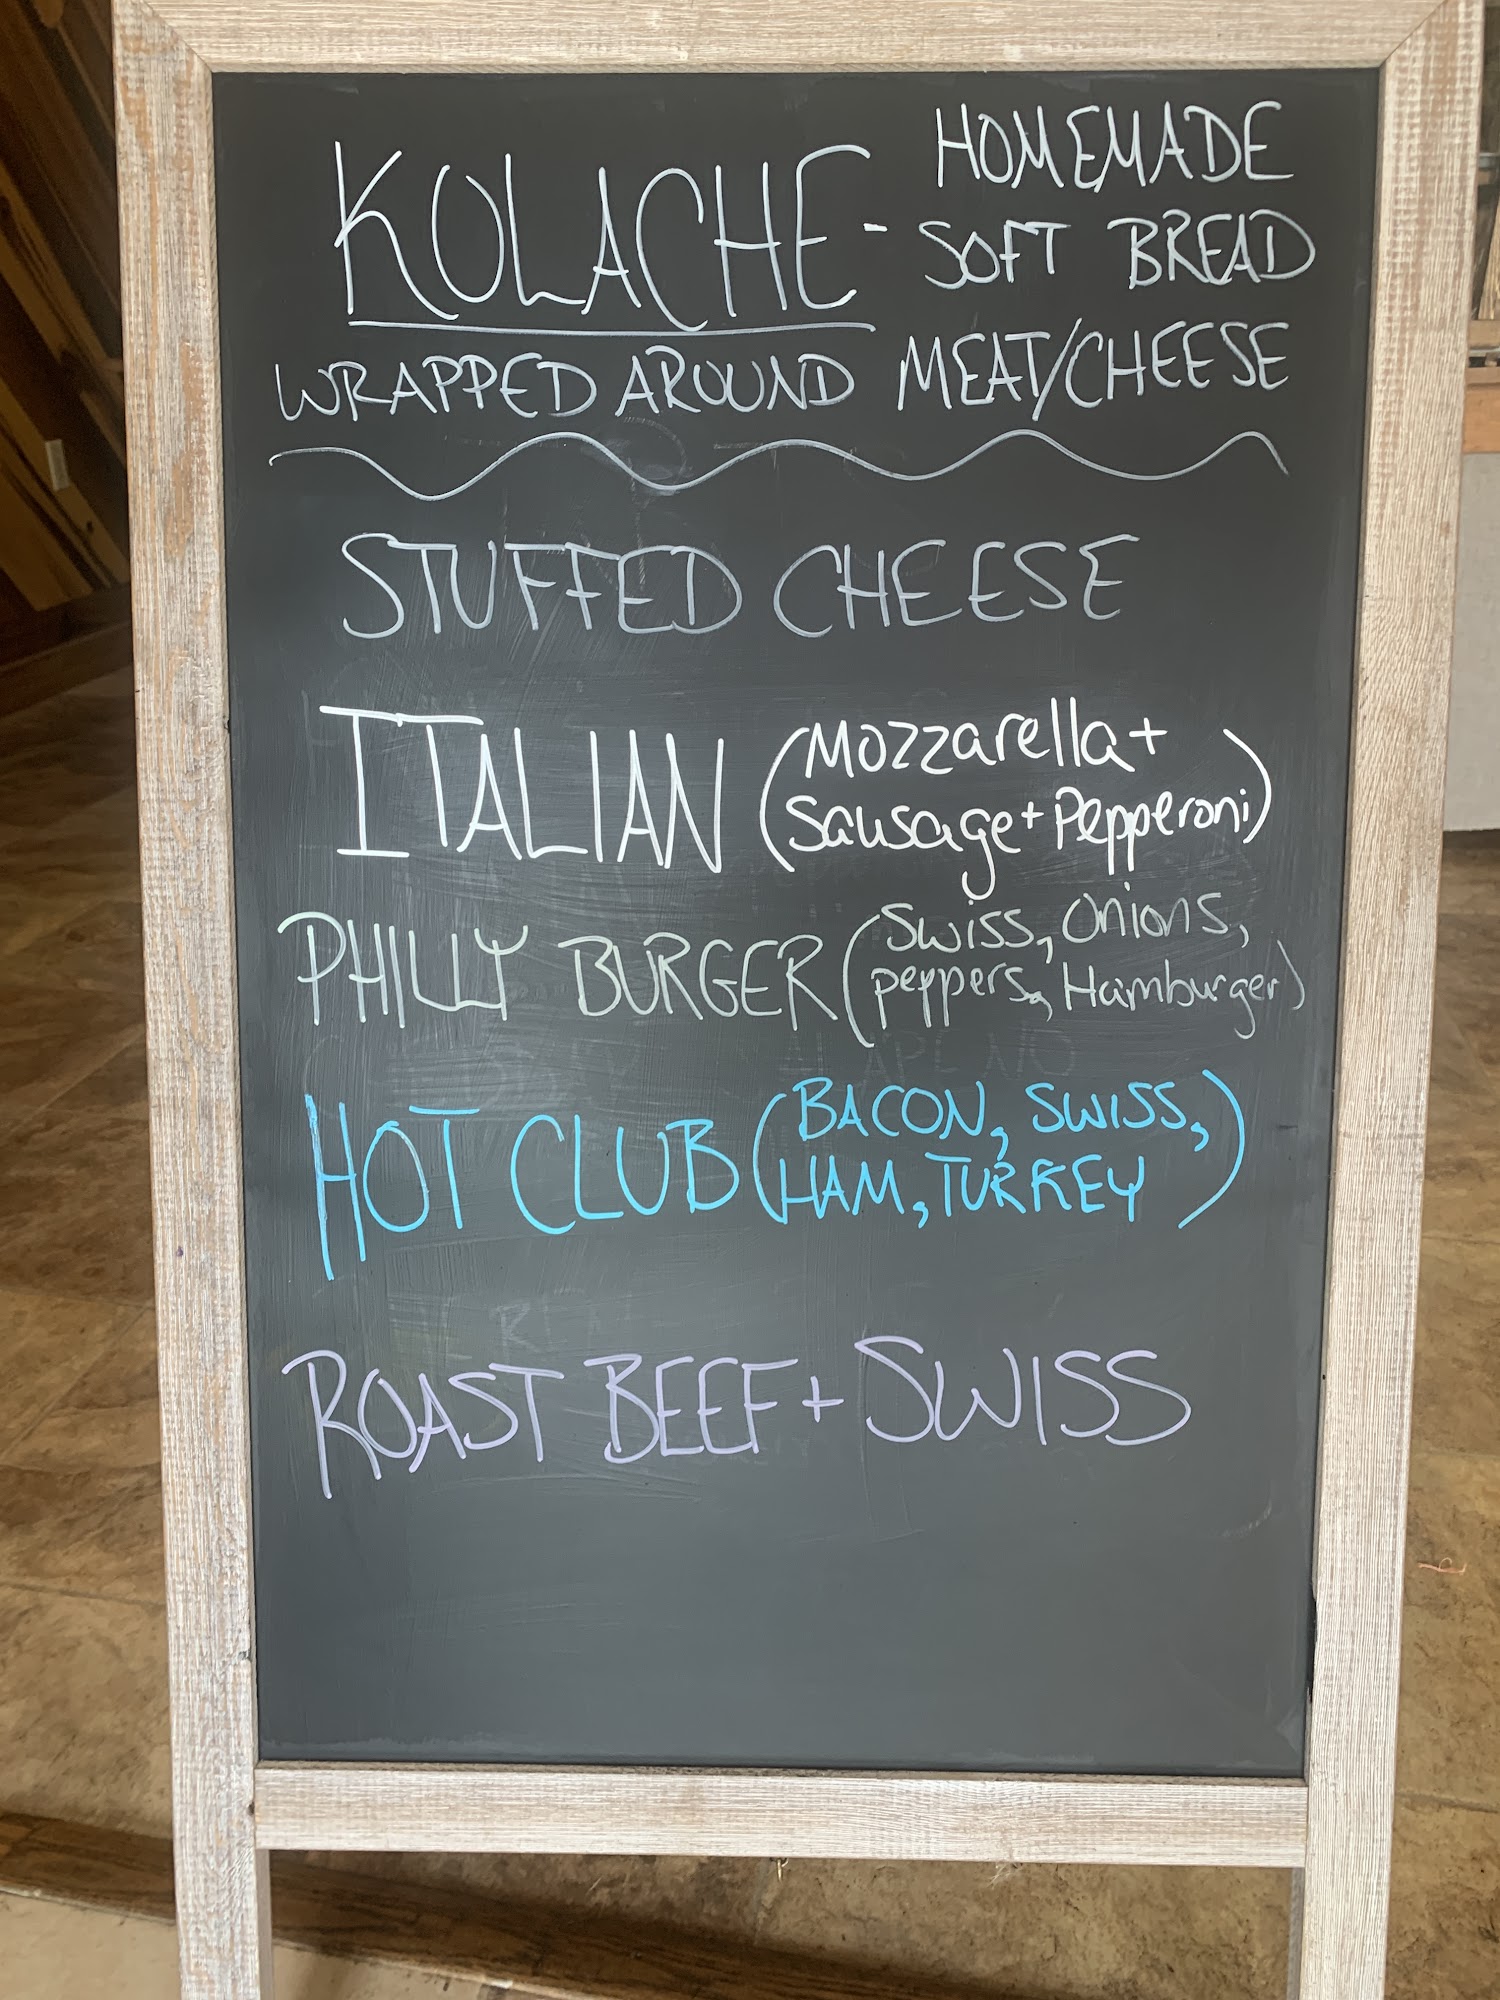 KOLACHE - HOMEMADE
SOFT BREAD
WRAPPED AROUND MEAT/CHEESE
STUFFED CHEESE
ITALIAN (Mozzarella +
Sausage + Pepperoni)
PHILLY BURGER (Swiss, Onions,
peppers, Hamburger)
HOT CLUB (BACON, SWISS,
HAM, TURKEY)
ROAST BEEF + SWISS